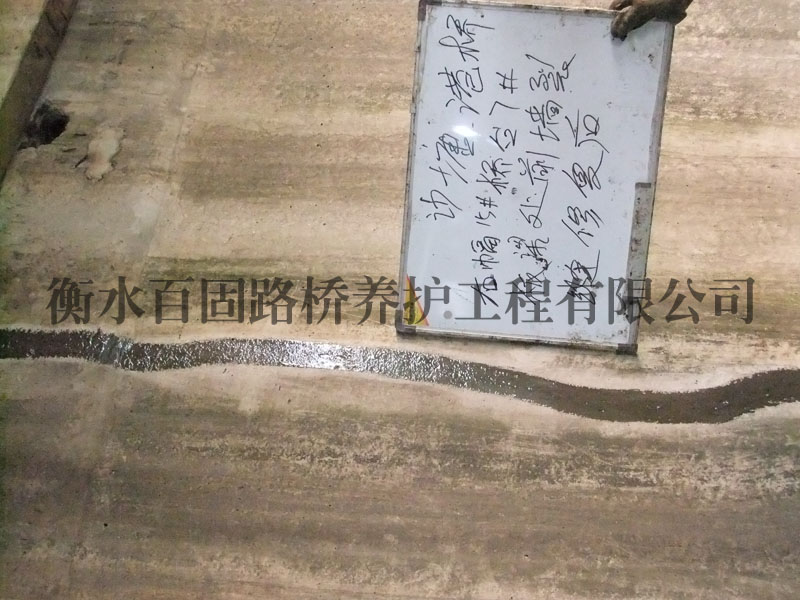 沙塘港桥
右幅15#桥台7#
裂缝处前墙裂
缝修复后
衡水百固路桥养护工程有限公司